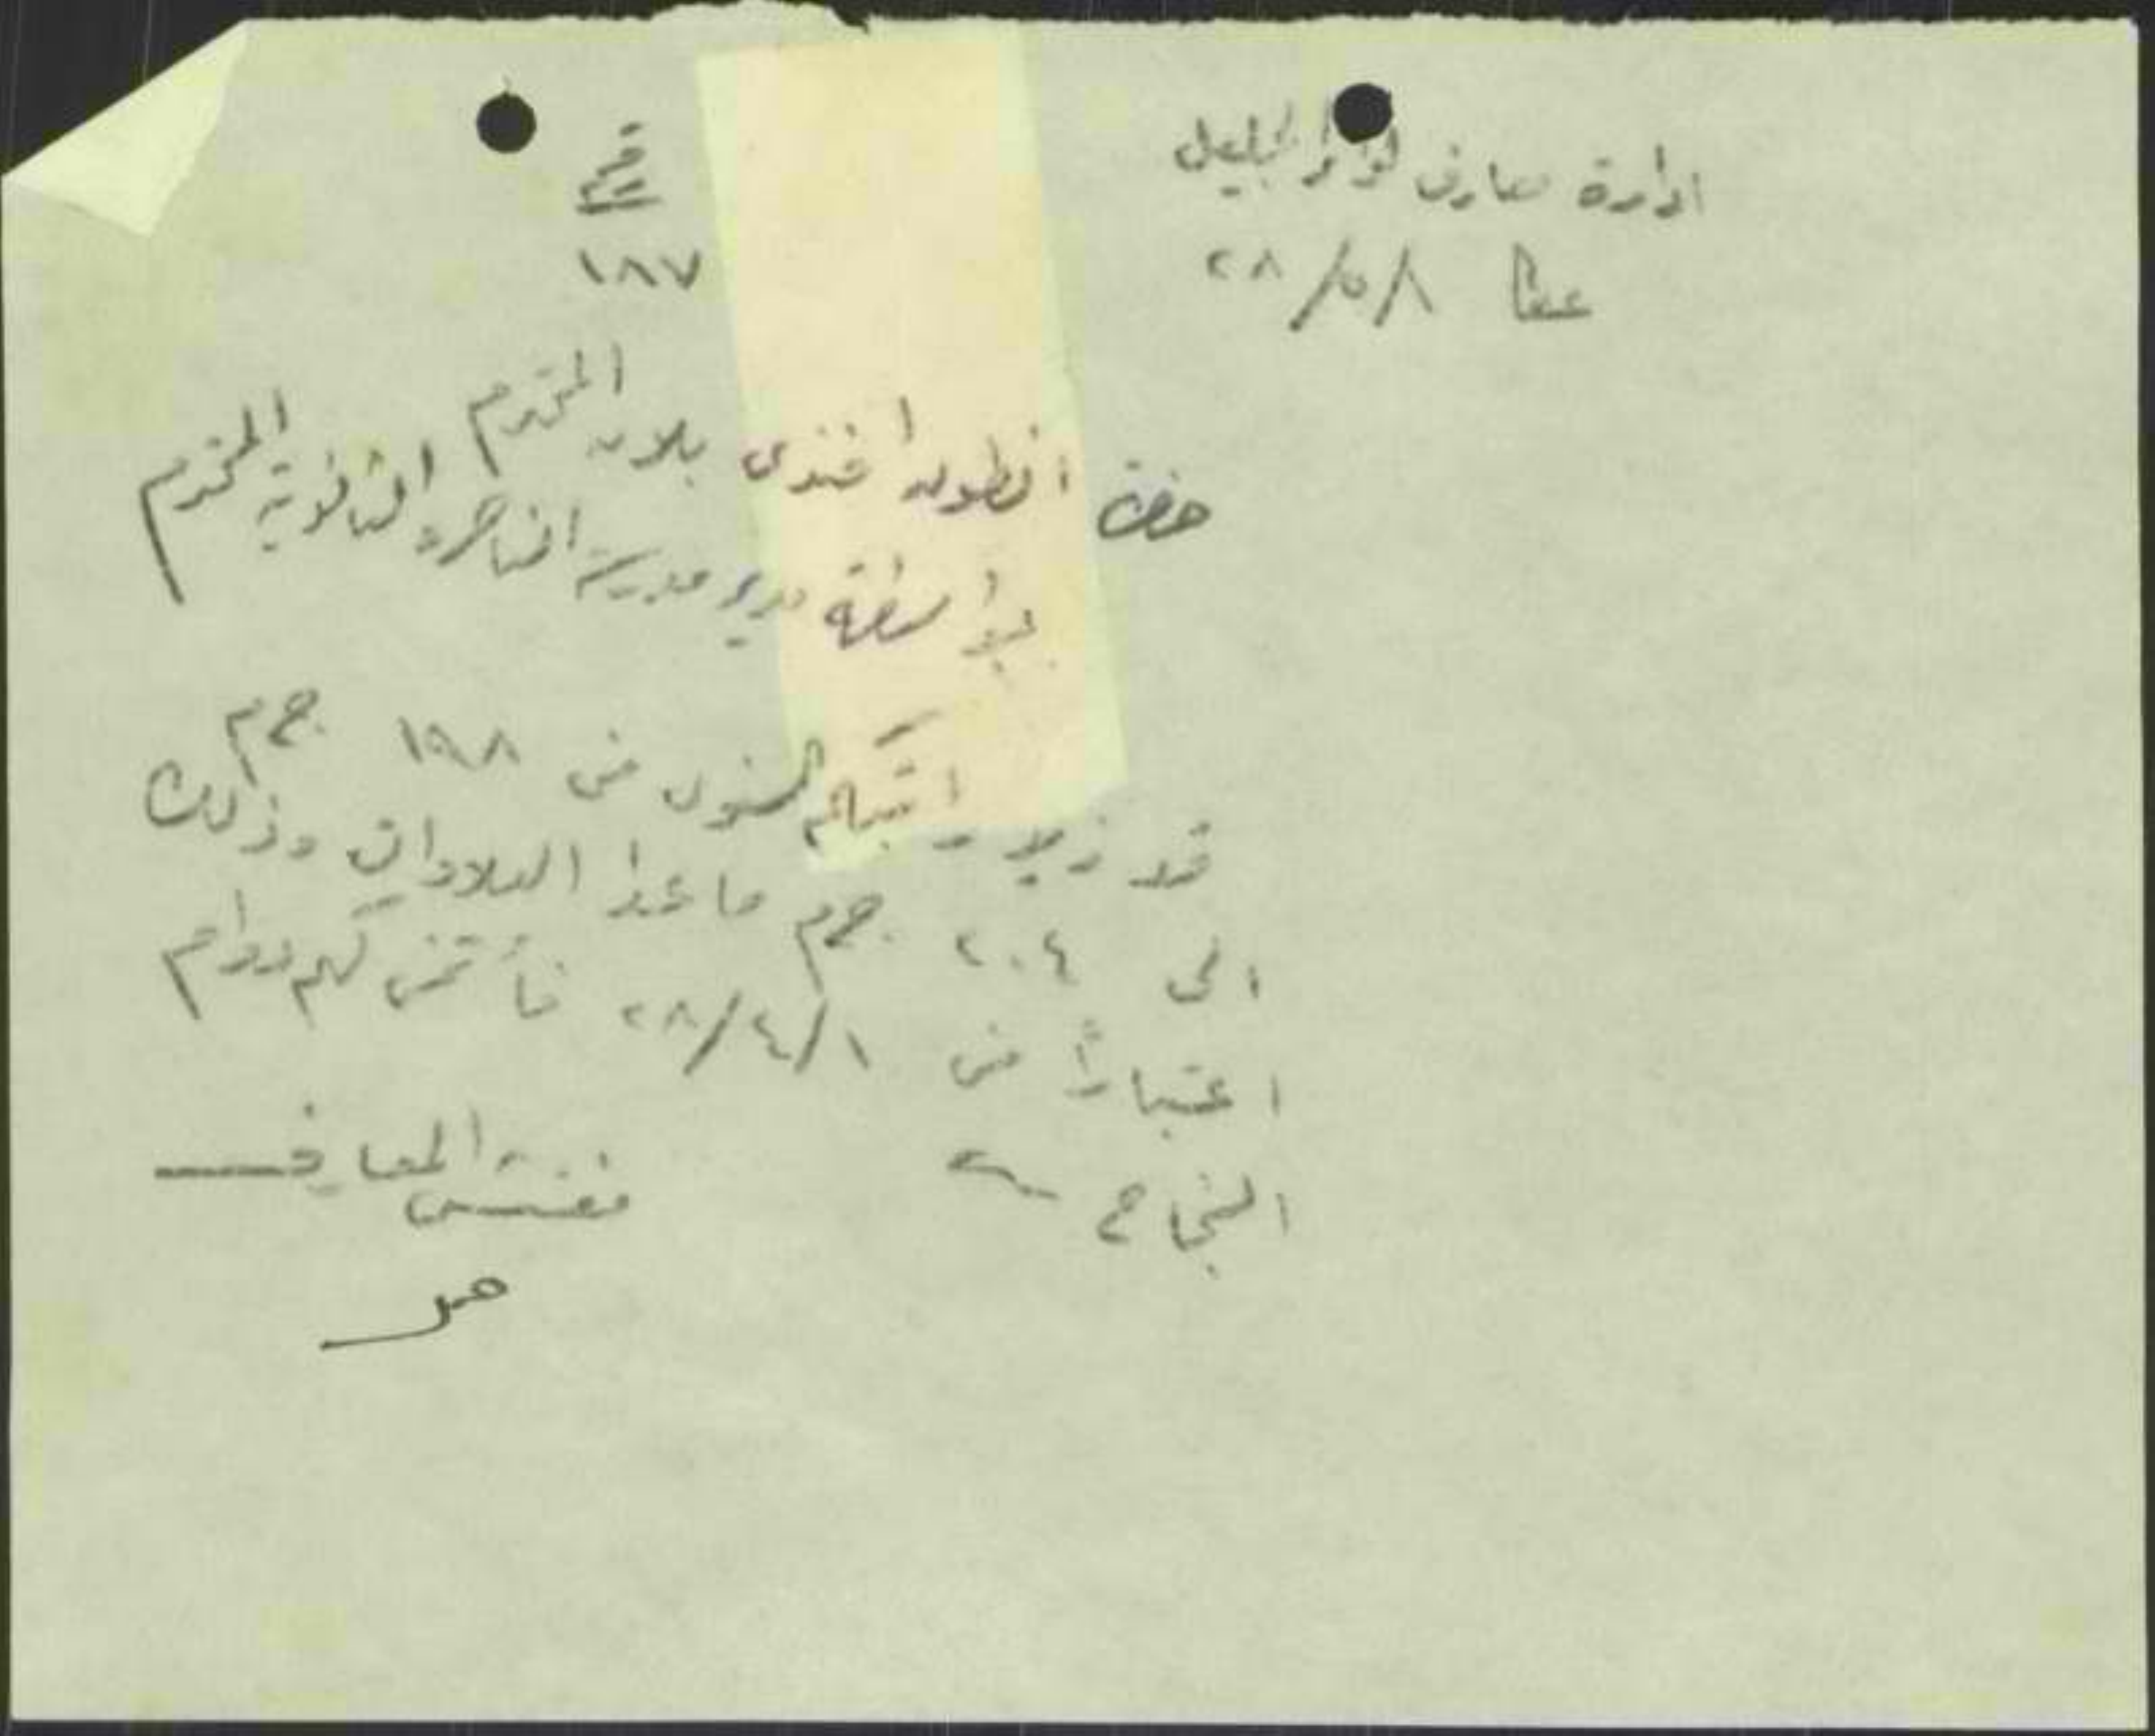 ادارة معارف لواء الجليل
عكا ٢٨/٥/٨
١٨٧
حضرة انطون افندي بلان المحترم
بواسطة مدير مدرسة الناصرة الثانوية المحترم
قد زيد راتبكم السنوي من ١٩٨ ج.م
الى ٢٠٤ ج.م ما عدا العلاوات وذلك
اعتباراً من ٢٨/٤/١ فأتمنى لكم دوام
النجاح
مفتش المعارف